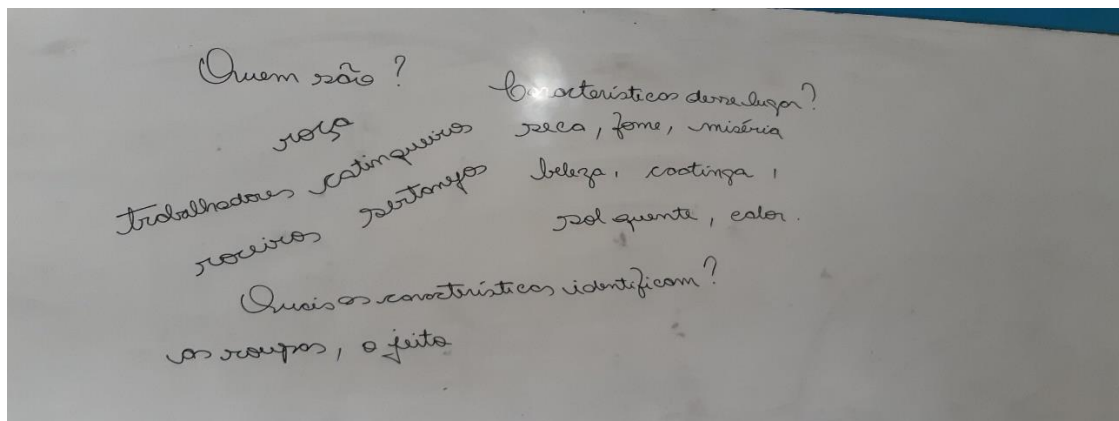 Quem são?
roça
trabalhadores catingueiros
roceiros sertanejos
Características desse lugar?
seca, fome, miséria
beleza, caatinga,
sol quente, calor.
Quais as características identificam?
as roupas, o jeito